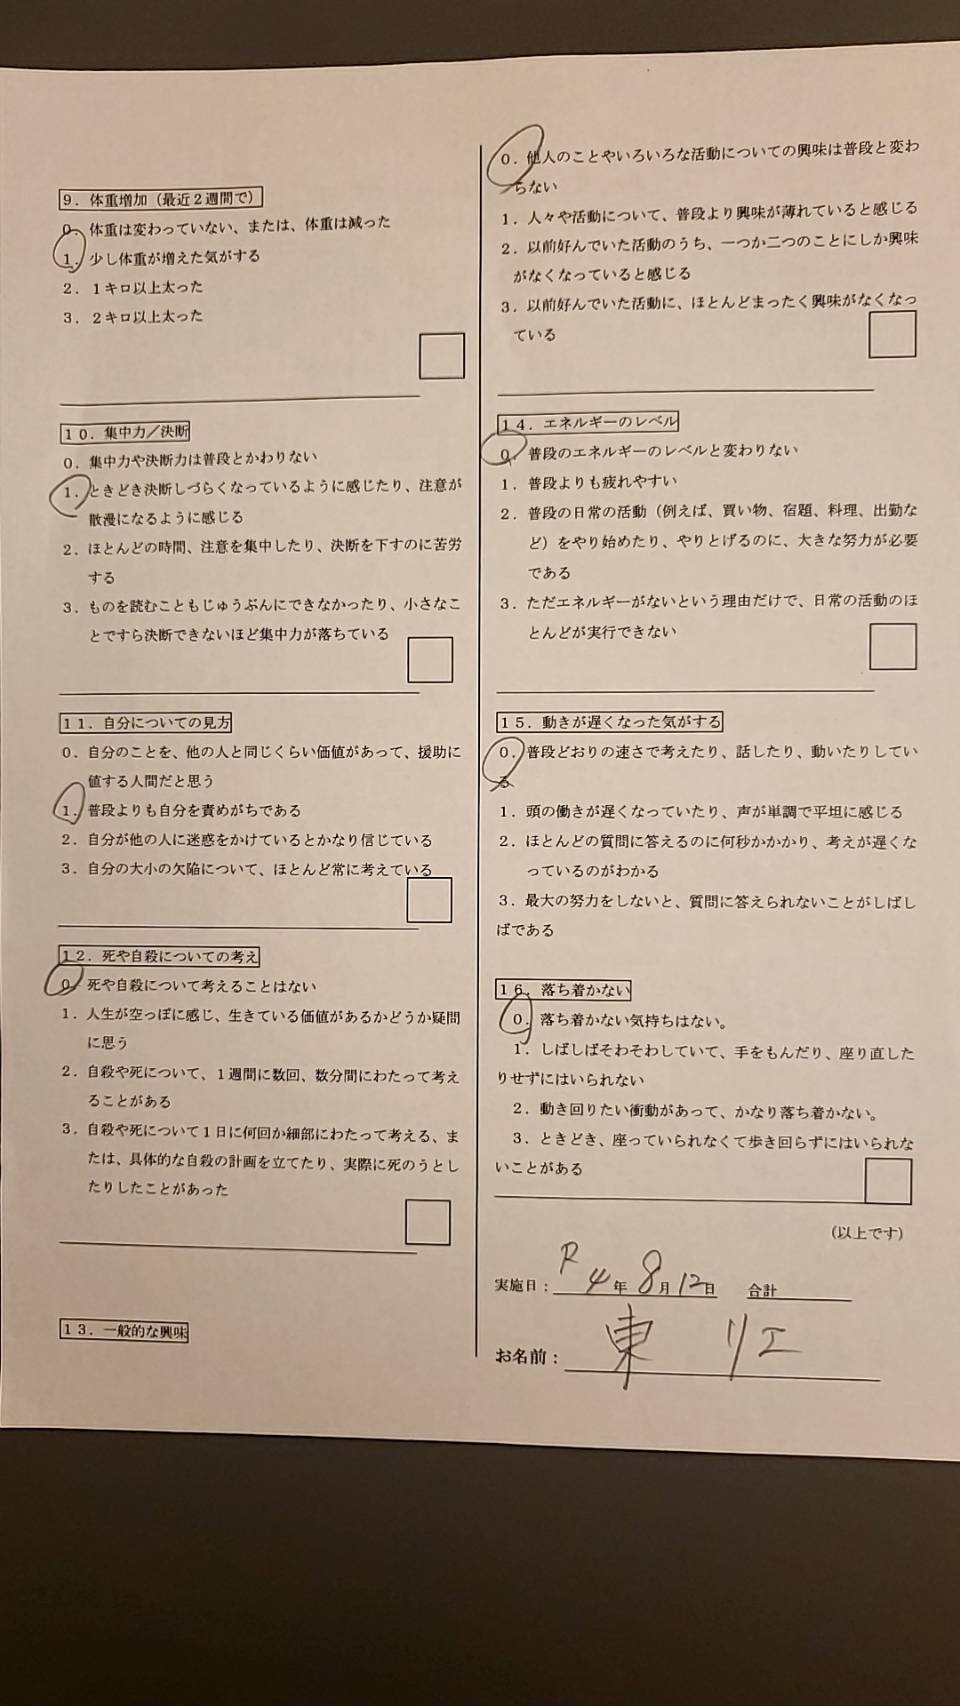 ９．体重増加（最近２週間で）
０．体重は変わっていない、または、体重は減った
１．少し体重が増えた気がする
２．１キロ以上太った
３．２キロ以上太った
１０．集中力／決断
０．集中力や決断力は普段とかわりない
１．ときどき決断しづらくなっているように感じたり、注意が
散漫になるように感じる
２．ほとんどの時間、注意を集中したり、決断を下すのに苦労
する
３．ものを読むこともじゅうぶんにできなかったり、小さなこ
とですら決断できないほど集中力が落ちている
１１．自分についての見方
０．自分のことを、他の人と同じくらい価値があって、援助に
値する人間だと思う
１．普段よりも自分を責めがちである
２．自分が他の人に迷惑をかけているとかなり信じている
３．自分の大小の欠陥について、ほとんど常に考えている
１２．死や自殺についての考え
０．死や自殺について考えることはない
１．人生が空っぽに感じ、生きている価値があるかどうか疑問
に思う
２．自殺や死について、１週間に数回、数分間にわたって考え
ることがある
３．自殺や死について１日に何回か細部にわたって考える、ま
たは、具体的な自殺の計画を立てたり、実際に死のうとし
たりしたことがあった
１３．一般的な興味
０．他人のことやいろいろな活動についての興味は普段と変わ
らない
１．人々や活動について、普段より興味が薄れていると感じる
２．以前好んでいた活動のうち、一つか二つのことにしか興味
がなくなっていると感じる
３．以前好んでいた活動に、ほとんどまったく興味がなくなっ
ている
１４．エネルギーのレベル
０．普段のエネルギーのレベルと変わりない
１．普段よりも疲れやすい
２．普段の日常の活動（例えば、買い物、宿題、料理、出勤な
ど）をやり始めたり、やりとげるのに、大きな努力が必要
である
３．ただエネルギーがないという理由だけで、日常の活動のほ
とんどが実行できない
１５．動きが遅くなった気がする
０．普段どおりの速さで考えたり、話したり、動いたりしてい
る
１．頭の働きが遅くなっていたり、声が単調で平坦に感じる
２．ほとんどの質問に答えるのに何秒かかかり、考えが遅くな
っているのがわかる
３．最大の努力をしないと、質問に答えられないことがしばし
ばである
１６．落ち着かない
０．落ち着かない気持ちはない。
１．しばしばそわそわしていて、手をもんだり、座り直した
りせずにはいられない
２．動き回りたい衝動があって、かなり落ち着かない。
３．ときどき、座っていられなくて歩き回らずにはいられな
いことがある
（以上です）
実施日：R4年8月12日 合計
お名前：東 リエ